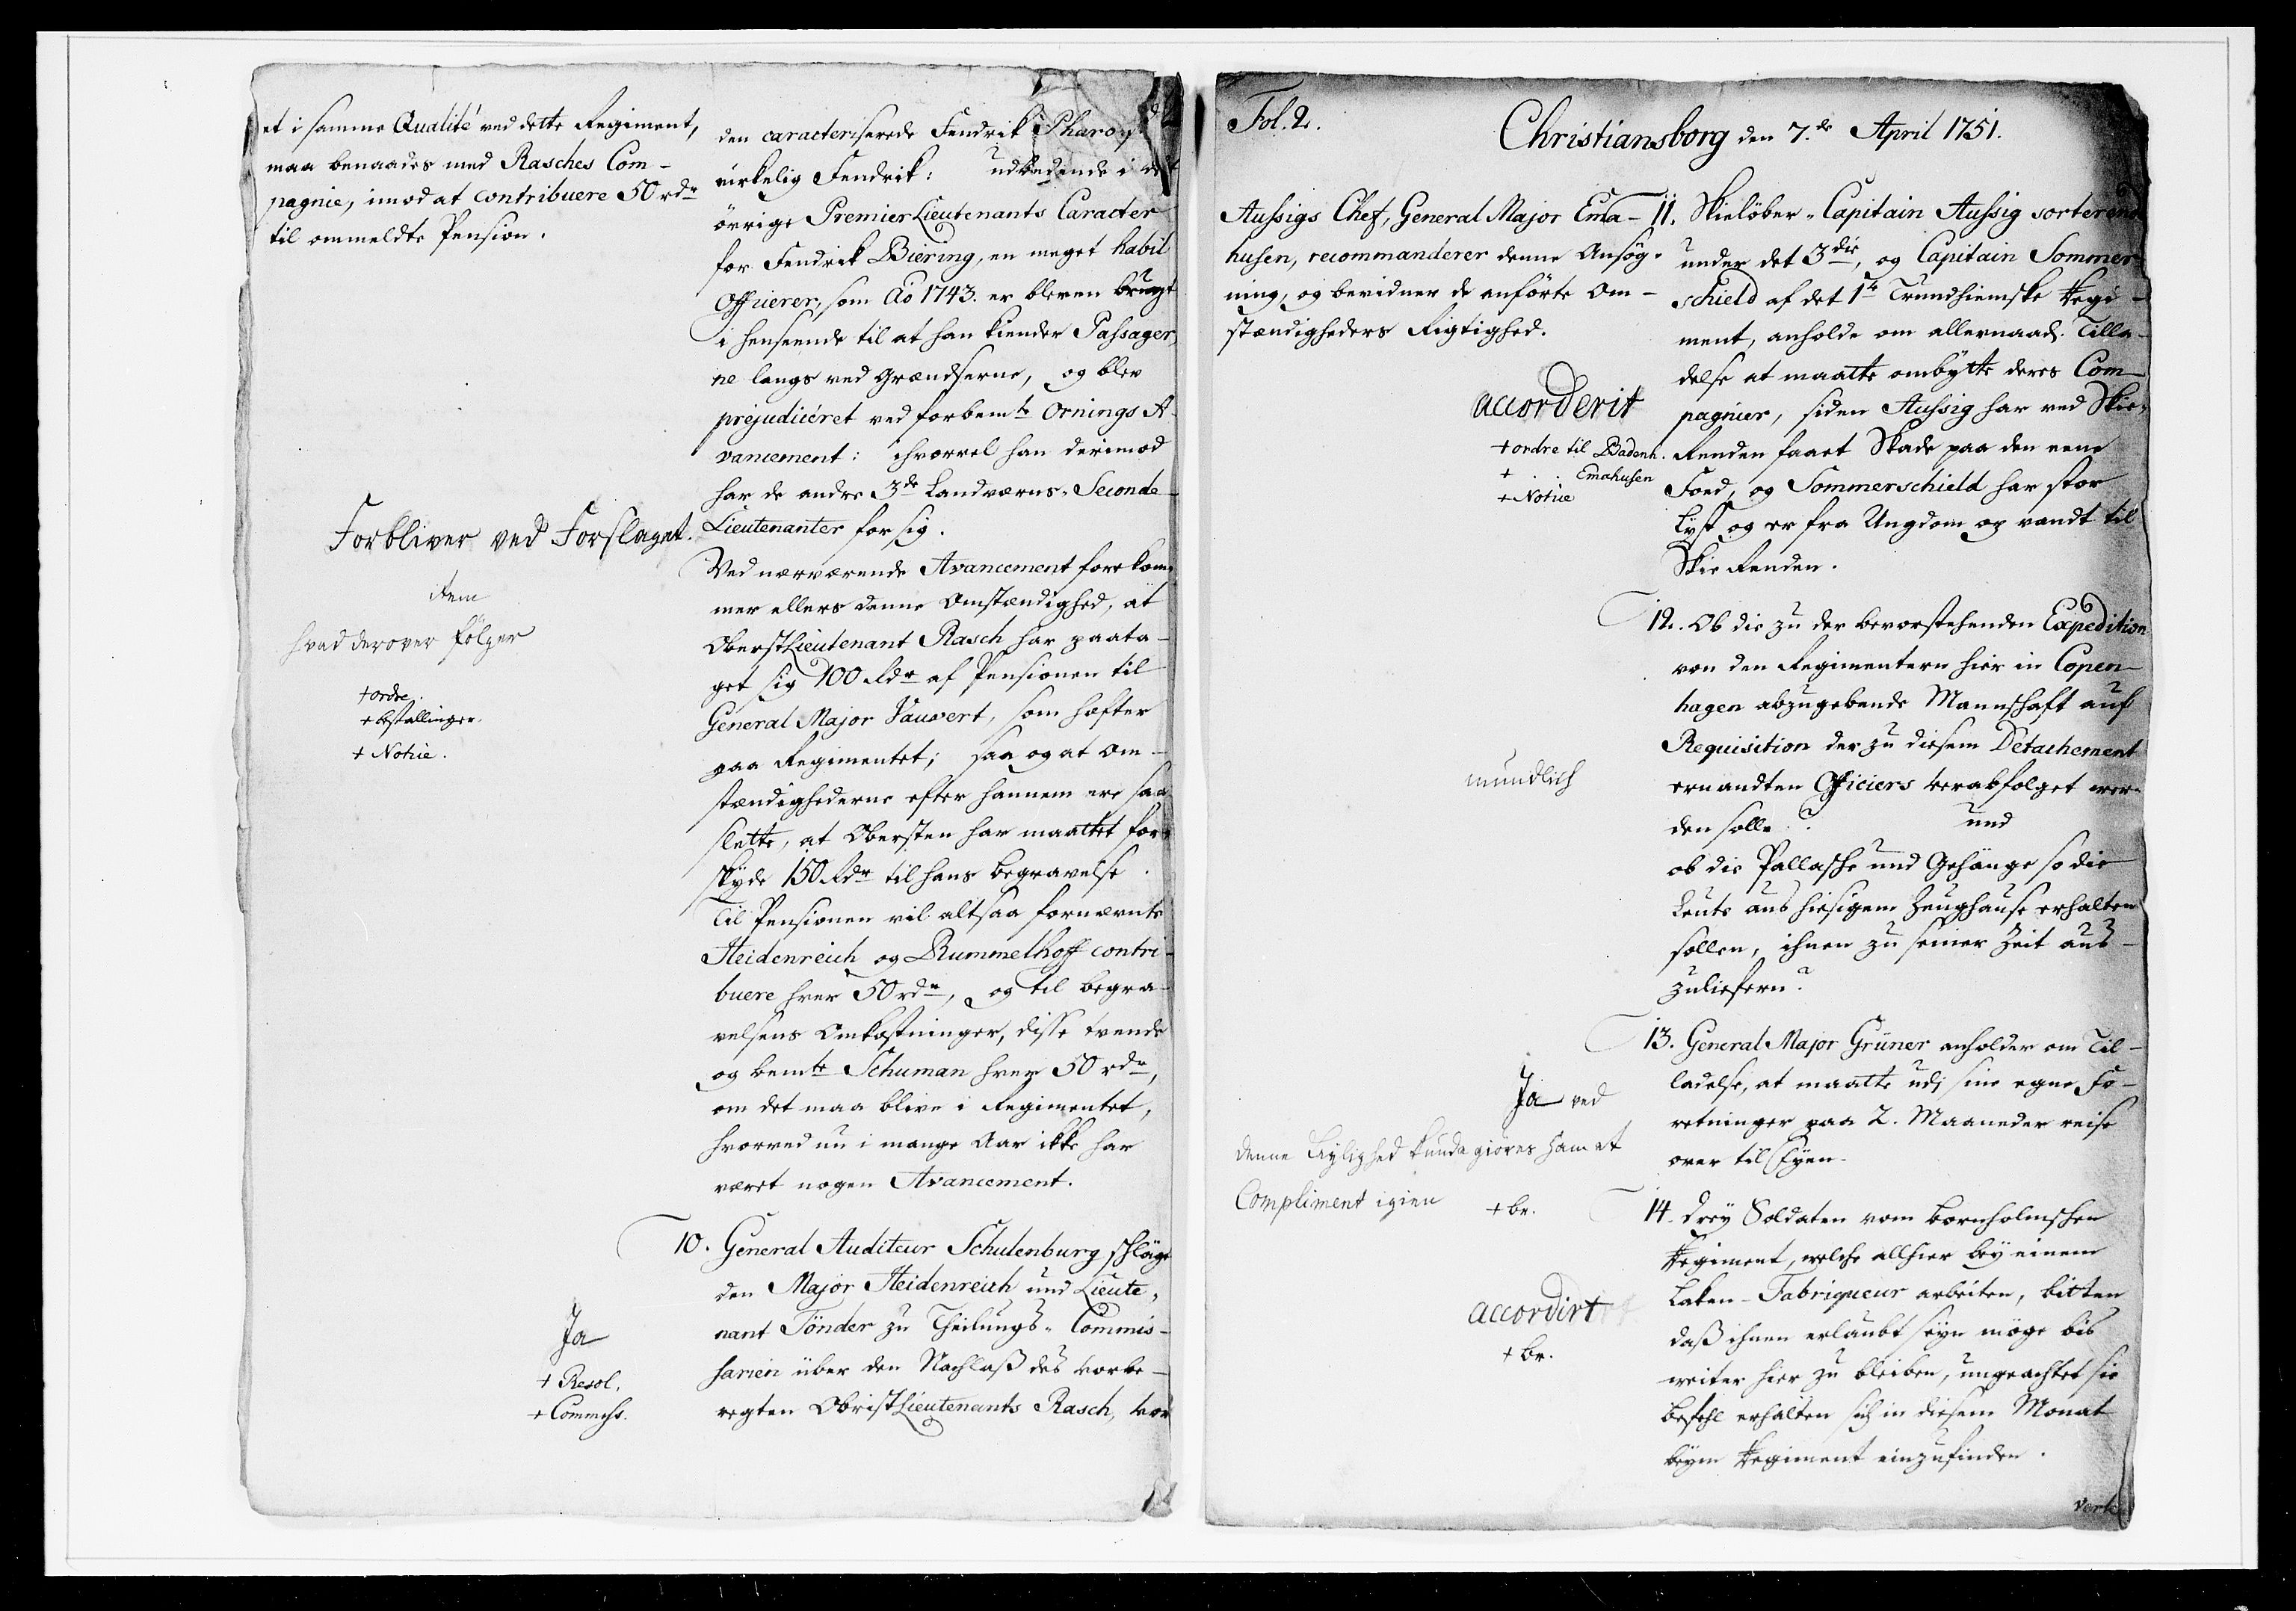 et i samme Qualité ved dette Regiment,
maa benaades med Rasches Com-
pagnie, imod at contribuere 50 rdr
til ommeldte Pension.
Forbliver ved Forslaget.
Item
hvad derover følger
+ ordre.
+ bestallinger.
+ Notice.
den caracteriserede Fendrik Pharo
virkelig Fendrik: udbedende i det
övrige PremierLieutenants Caracter
for Fendrik Biering, en meget habil
Officerer, som Ao 1743. er bleven brugt
i henseende til at han kiender Passager,
ne langs ved Grændserne, og blev
prejudiceret ved forbemte Ornings A-
vancement: ihvorvel han derimod
har de andre 3de Landværns-Seconde
Lieutenanter for sig.
Ved nærværende Avancement forekom-
mer ellers denne Omstændighed, at
OberstLieutenant Rasch har paata-
get sig 100 Rdr af Pensionen til
General Major Vauvert, som hæfter
paa Regimentet; saa og at Om-
stændighederne efter hannem ere saa
slette, at Obersten har maattet for-
skyde 150 Rdr til hans Begravelse.
Til Pensionen vil altsaa fornævnte
Heidenreich og Rummelhoff contri-
buere hver 50 rdr, og til Begra-
velsens Omkostninger, disse tvende
og bemte Schuman hver 50 rdr,
om det maa blive i Regimentet,
hvorved nu i mange Aar ikke har
været nogen Avancement.
10. General Auditeur Schulenburg schläge
den Major Heidenreich und Lieute-
nant Tönder zu Theilungs-Commis-
sarien über den Nachlaß des vorbe-
regten ObristLieutenants Rasch, vor
Ja
+ Resol.
+ Commiss.
Fol. 2.
Christiansborg den 7.de April 1751.
Aussigs Chef, General Major Ema-
husen, recommanderer denne Ansög-
ning, og bevidner de anförte Om-
stændigheders Rigtighed.
accorderit
+ ordre til Badenh.
+ . . Emahusen
+ Notice
11. Skielöber-Capitain Aussig sorterende
under det 3die, og Capitain Sommer
schield af det 1te Trundhiemske Regi-
ment, anholde om allernaad. Tilla-
delse at maatte ombytte deres Com-
pagnier, siden Aussig har ved Skie-
Renden faaet Skade paa den eene
Foed, og Sommerschield har stor
Lyst og er fra Ungdom op vandt til
Skie Renden.
12. Ob die zu der bevorstehenden Expedition
von den Regimentern hier in Copen-
hagen abzugebende Mannschaft auf
Requisition der zu diesem Detachement
ernandten Officiers verabfolget wer-
den solle? und
ob die Pallasche und Gehänge so die
Leute aus hiesigem Zeughause erhalten
sollen, ihnen zu seiner Zeit aus-
zuliefern?
mundlich
13. General Major Grüner anholder om Til-
ladelse, at maatte udi sine egne For-
retninger paa 2. Maaneder reise
over til Fyen.
Ja ved
denne Leylighed kunde giöres ham et
Compliment igien
+ br.
14. Drey Soldaten vom Bornholmschen
Regiment, welche allhier bey einem
Laken-Fabriqueur arbeiten, bitten
daß ihnen erlaubt seyn möge bis
weiter hier zu bleiben, ungeachtet sie
Befehl erhalten sich in diesem Monat
beym Regiment einzufinden.
accordirt
+ br.
verte